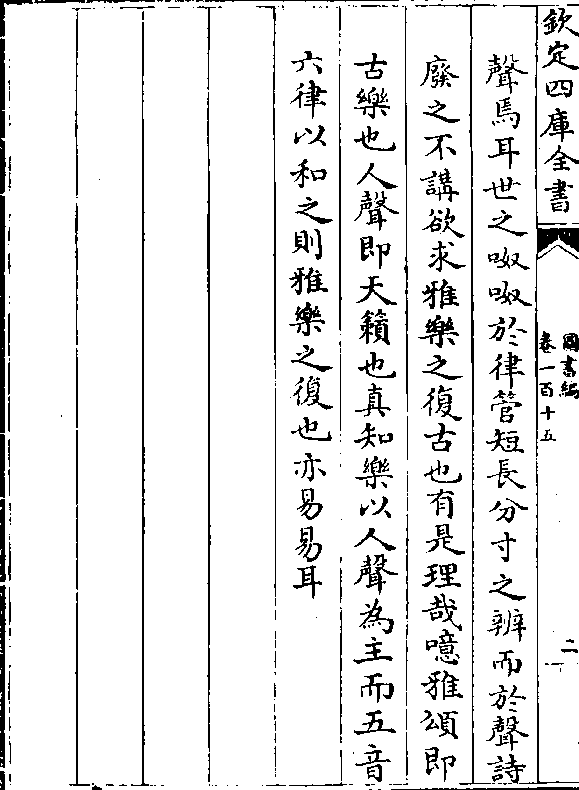 欽定四庫全書
圖書編
卷一百十五
二
聲焉耳世之呶呶於律管短長分寸之辨而於聲詩
廢之不講欲求雅樂之復古也有是理哉噫雅頌即
古樂也人聲即天籟也真知樂以人聲為主而五音
六律以和之則雅樂之復也亦易易耳